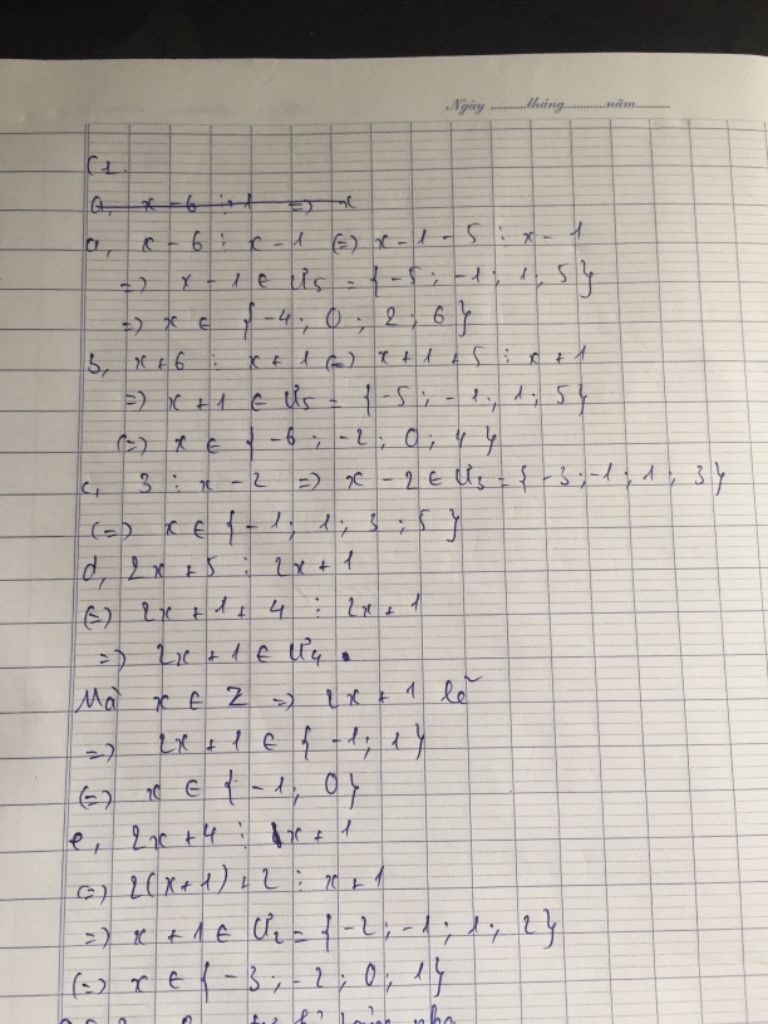 Ngày ...........tháng............năm..........
C1.
a, x - 6 ⋮ 1 => x
a, x - 6 ⋮ x - 1 (=) x - 1 - 5 ⋮ x - 1
=) x - 1 ∈ Ư5 = {-5 ; -1 ; 1 ; 5}
=> x ∈ {-4 ; 0 ; 2 ; 6}
b, x + 6 ⋮ x + 1 (=) x + 1 + 5 ⋮ x + 1
=) x + 1 ∈ Ư5 = {-5 ; -1 ; 1 ; 5}
(=) x ∈ {-6 ; -2 ; 0 ; 4}
c, 3 ⋮ x - 2 => x - 2 ∈ Ư3 = {-3 ; -1 ; 1 ; 3}
(=) x ∈ {-1 ; 1 ; 3 ; 5}
d, 2x + 5 ⋮ 2x + 1
(=) 2x + 1 + 4 ⋮ 2x + 1
=) 2x + 1 ∈ Ư4 .
Mà x ∈ Z => 2x + 1 lẻ
=) 2x + 1 ∈ {-1 ; 1}
(=) x ∈ {-1 ; 0}
e, 2x + 4 ⋮ x + 1
(=) 2(x + 1) + 2 ⋮ x + 1
=) x + 1 ∈ Ư2 = {-2 ; -1 ; 1 ; 2}
(=) x ∈ {-3 ; -2 ; 0 ; 1}